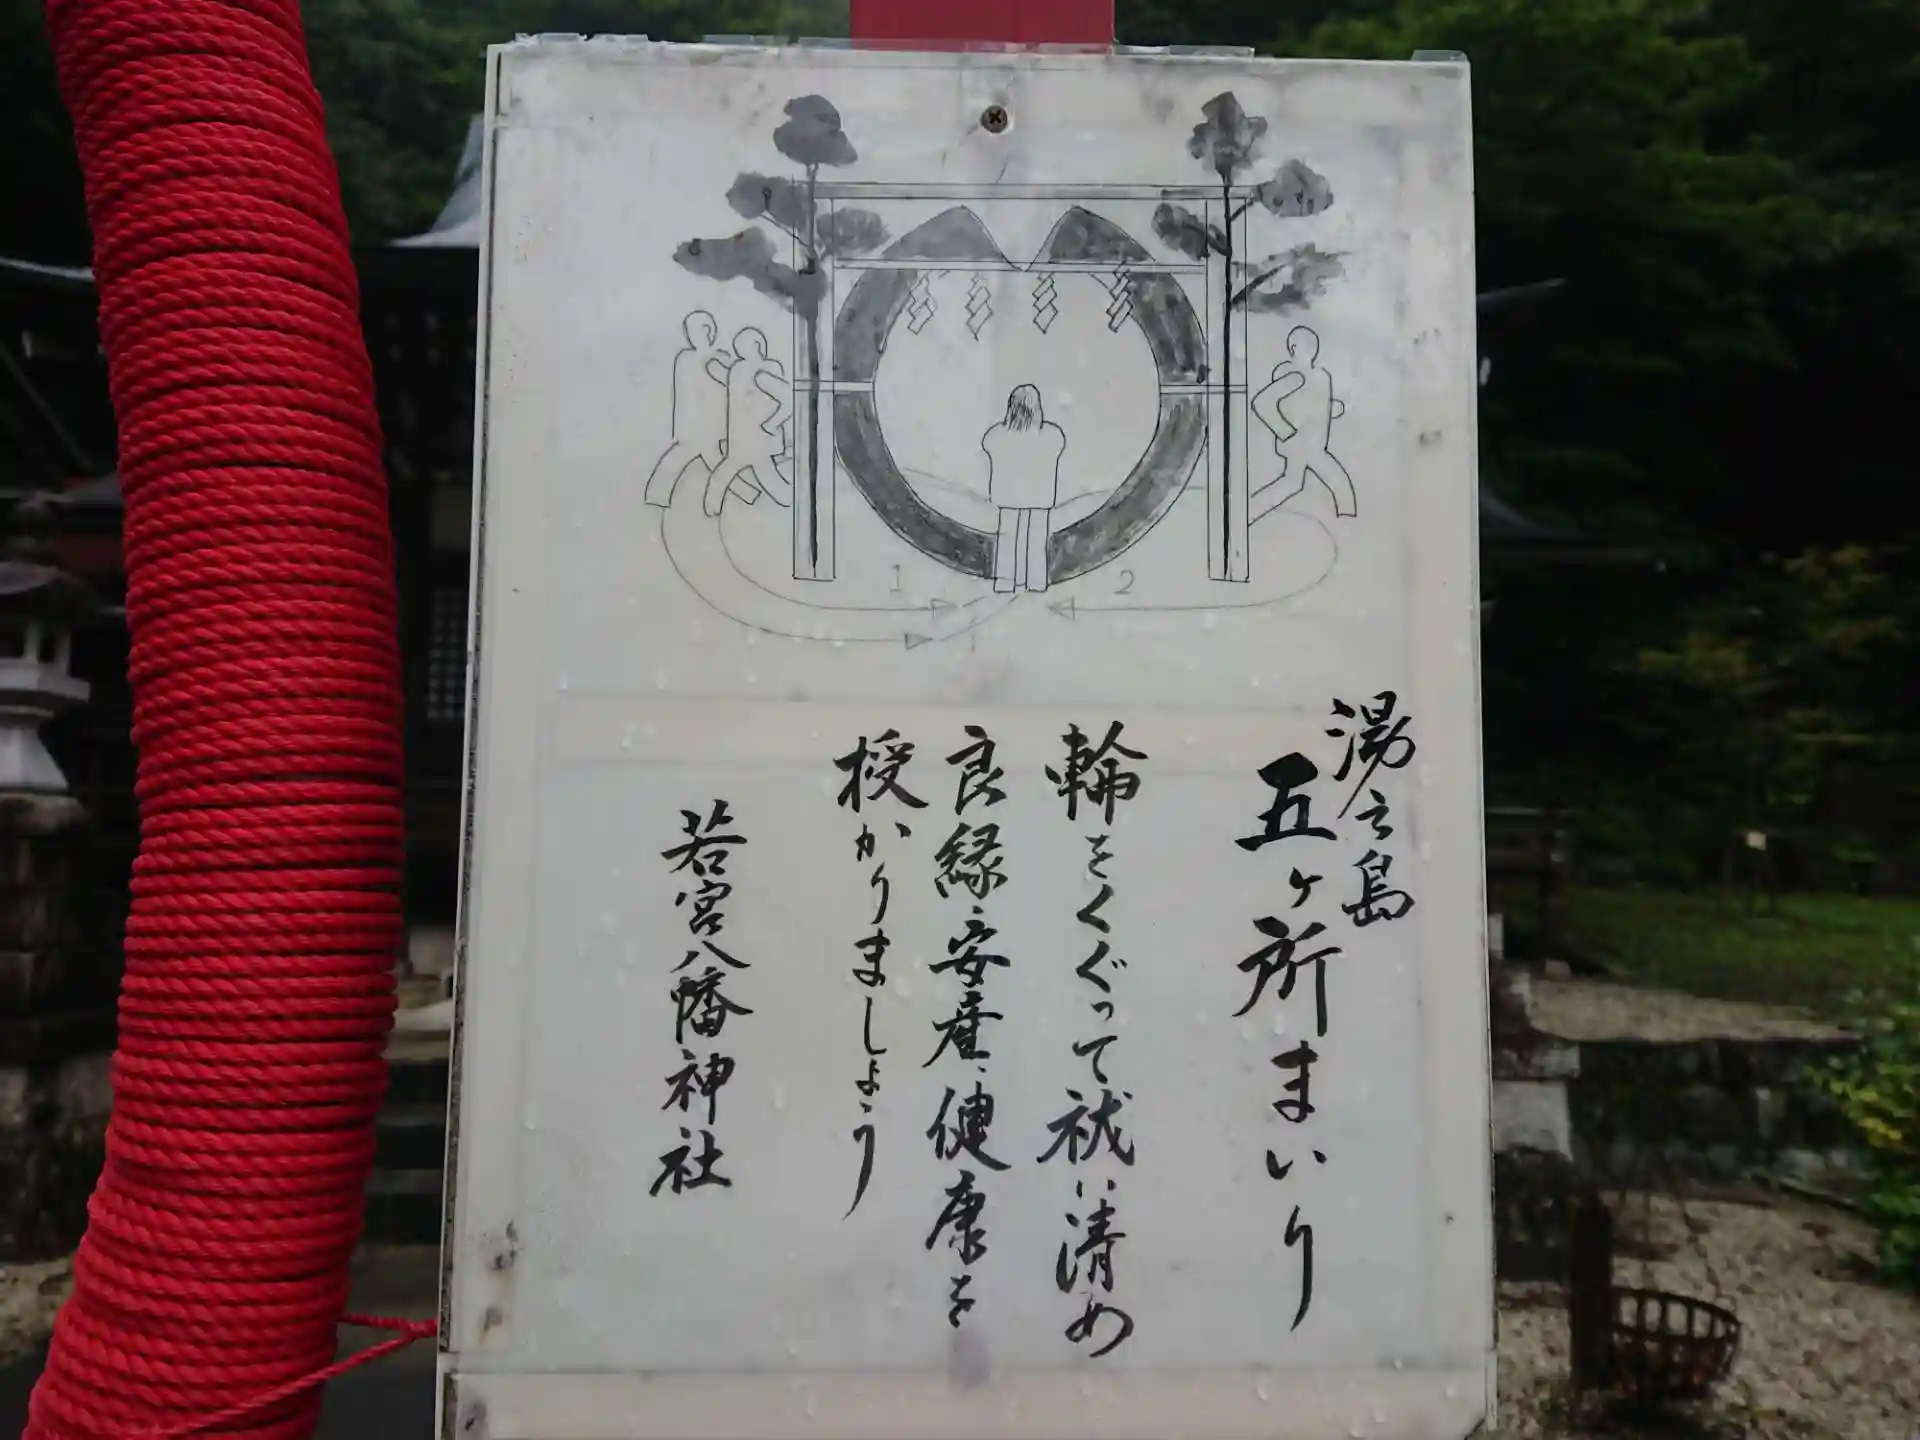 湯之島
五ヶ所まいり
輪をくぐって祓い清め
良縁、安産、健康を
授かりましょう
若宮八幡神社
1
2
1